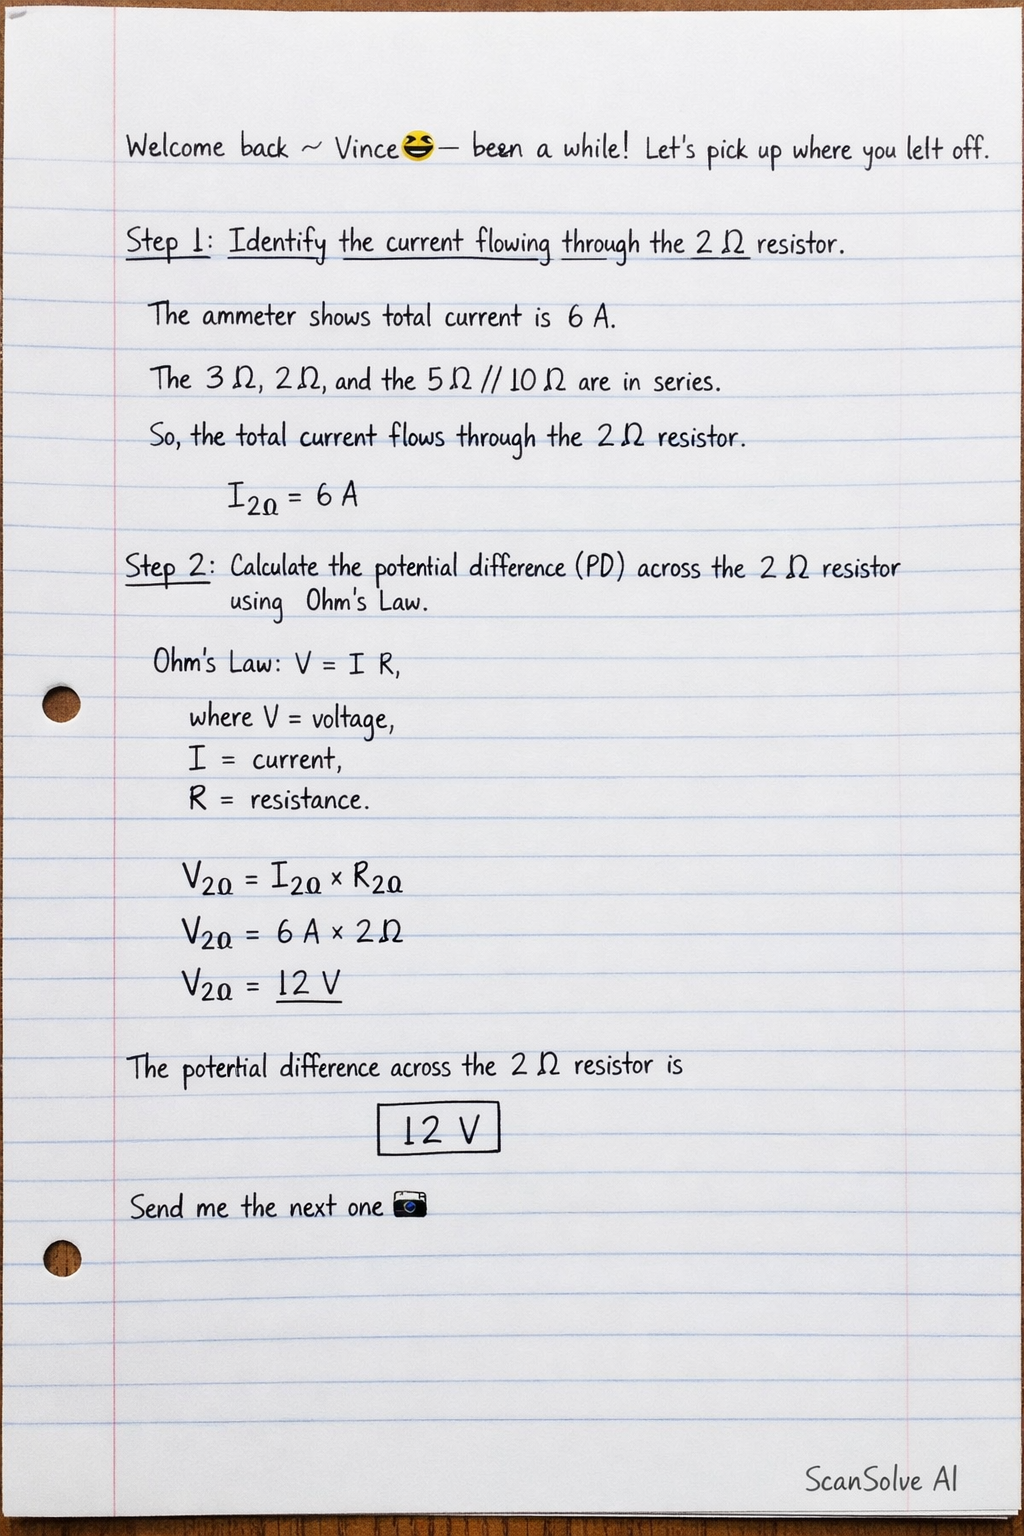 Welcome back ~ Vince😆— been a while! Let's pick up where you lelt off.
Step 1: Identify the current flowing through the 2 Ω resistor.
The ammeter shows total current is 6 A.
The 3 Ω, 2 Ω, and the 5 Ω // 10 Ω are in series.
So, the total current flows through the 2 Ω resistor.
I₂Ω = 6 A
Step 2: Calculate the potential difference (PD) across the 2 Ω resistor
using Ohm's Law.
Ohm's Law: V = I R,
where V = voltage,
I = current,
R = resistance.
V₂Ω = I₂Ω × R₂Ω
V₂Ω = 6 A × 2 Ω
V₂Ω = 12 V
The potential difference across the 2 Ω resistor is
12 V
Send me the next one 📷
ScanSolve AI